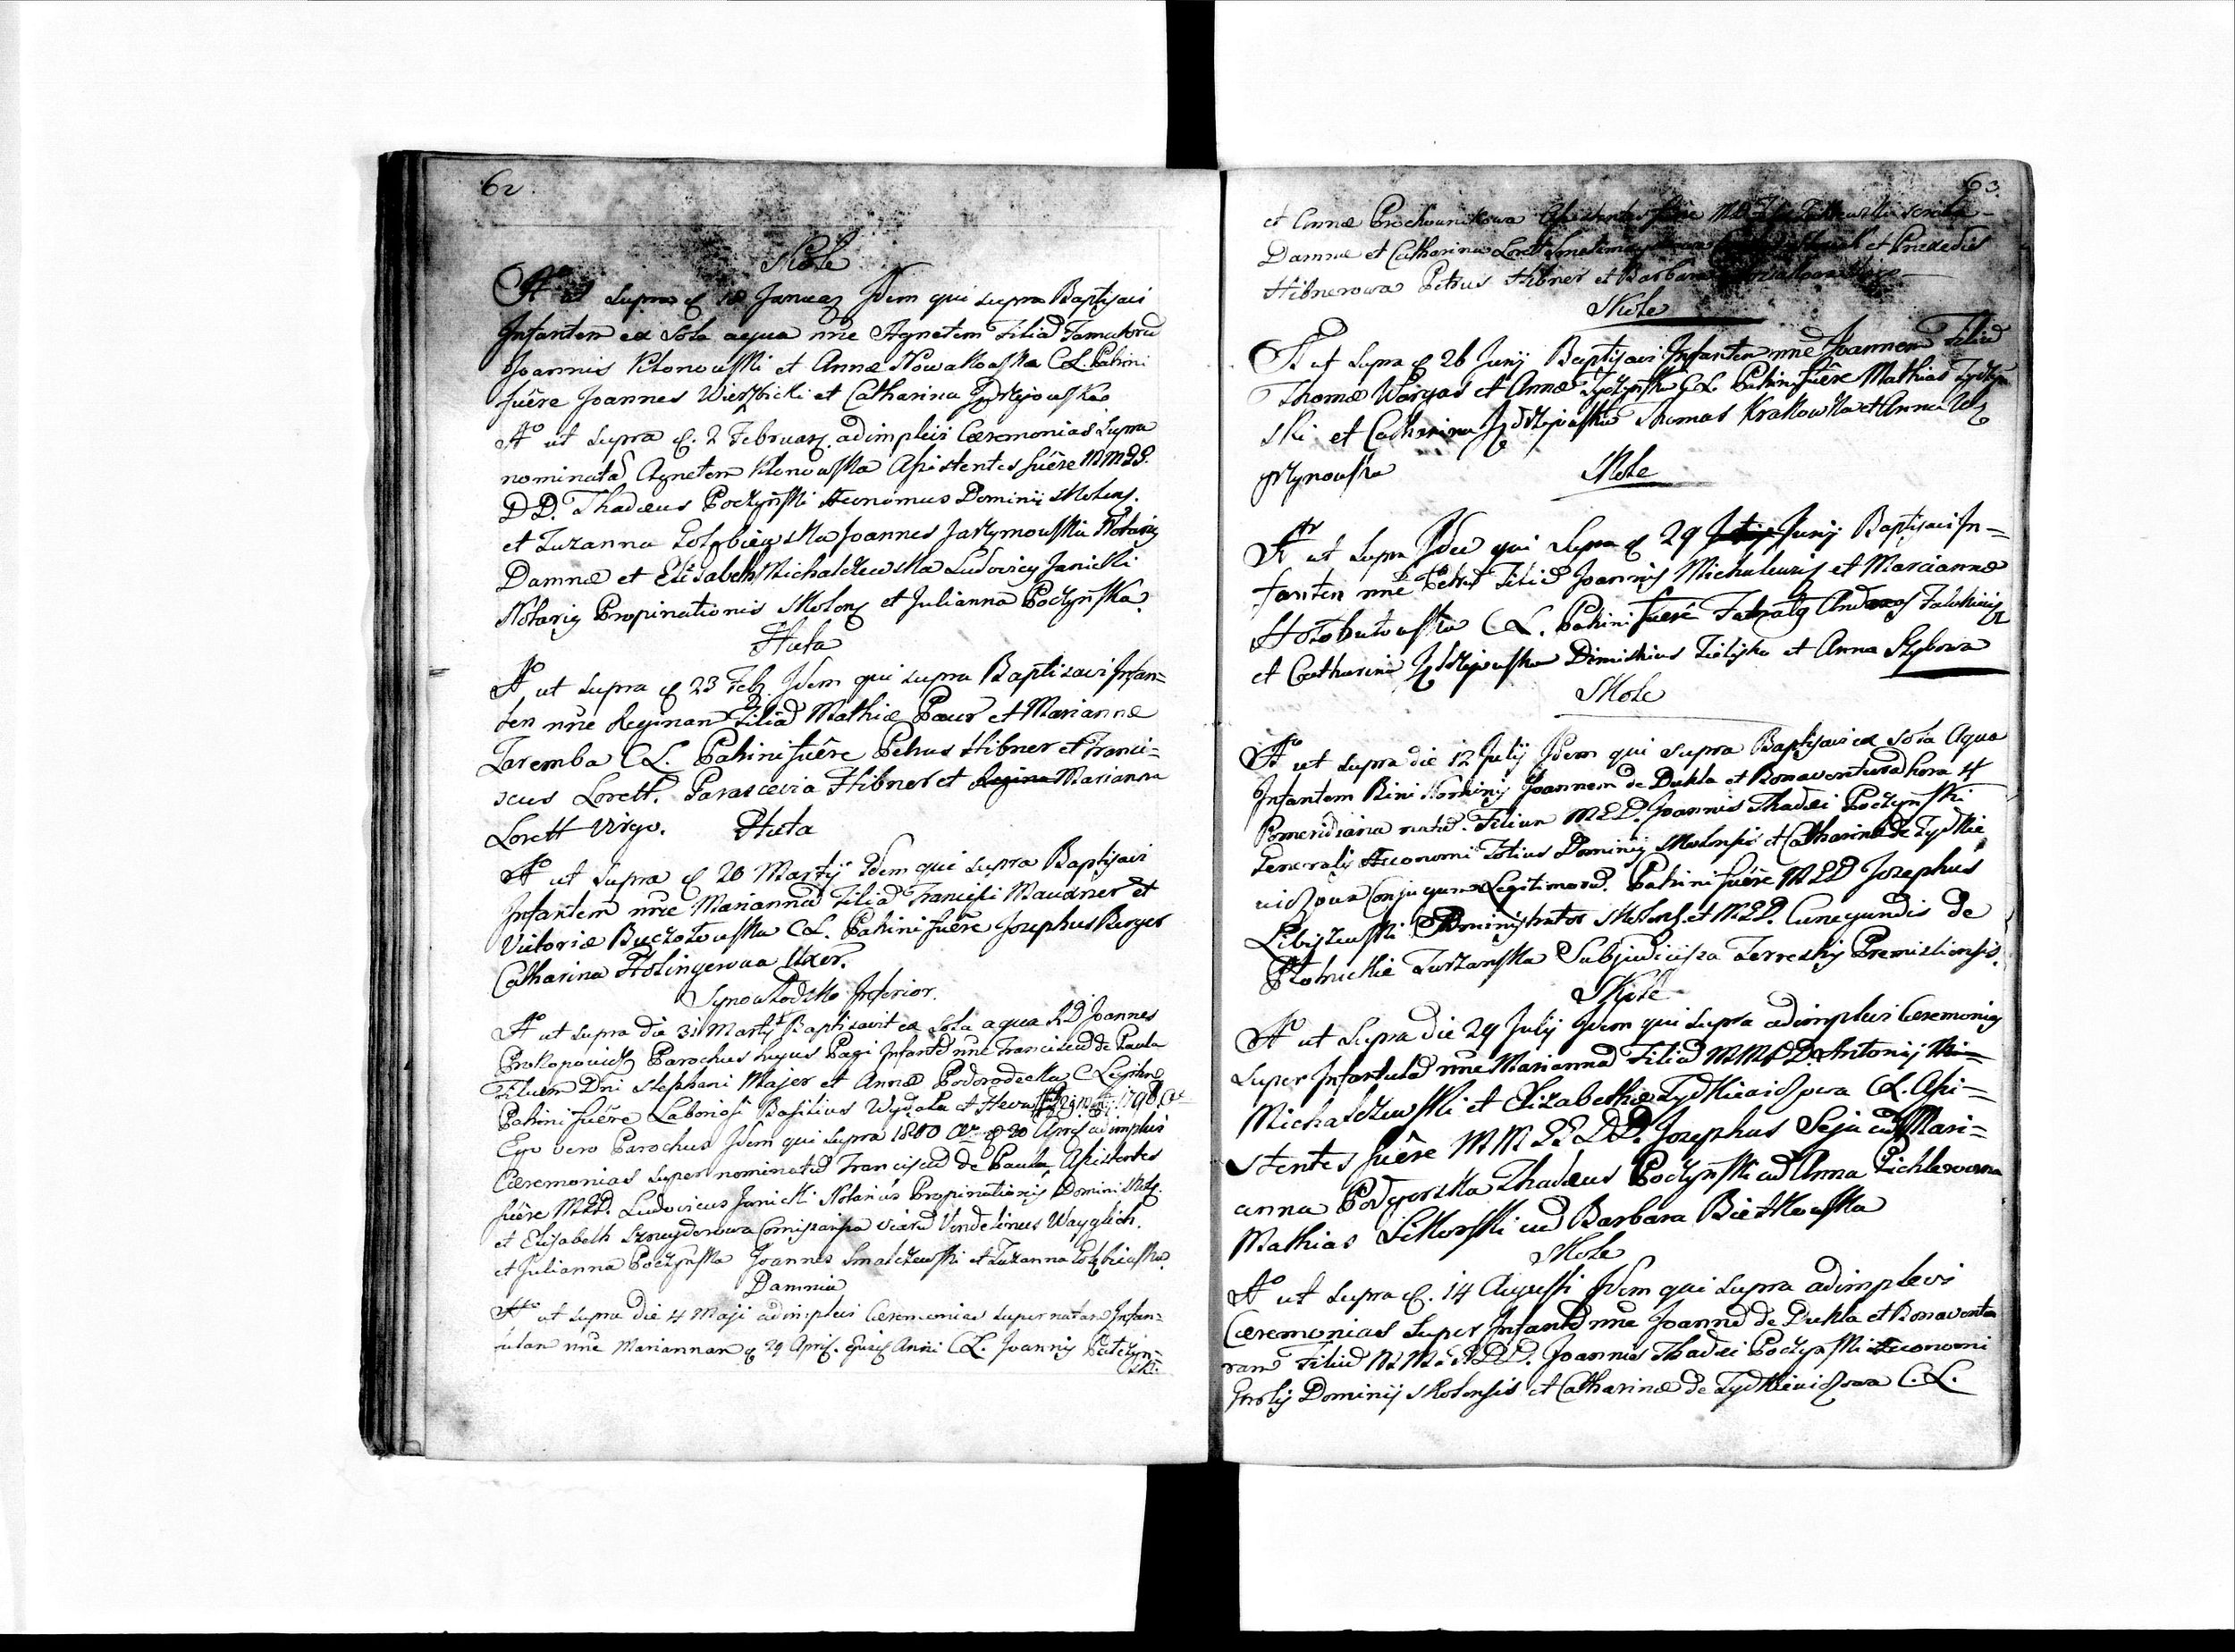 62.
Skole
Aº ut supra d. 18 Januar. Idem qui supra Baptisavi
Infantem ex sola aqua nne Agnetem Filiã Famatorũ
Joannis Klonowski et Annæ Nowakowska C.L. Patrini
fuêre Joannes Wierzbicki et Catharina Jędrzejowska
Aº ut supra d. 2 Februar. adimplevi Cæremonias supra
nominatã Agnetem Klonowska Assistentes fuêre MMGG.
DD. Thadæus Poczyński Æconomus Dominij Skolens.
et Zuzanna Gołębiewska Joannes Jarzymowski Notariq
Damnæ et Elisabeth Michalczewska Ludovicq Janicki
Notariq Propinationis Skolens et Julianna Poczyńska.
Huta
Aº ut supra d 23 Feb. Idem qui supra Baptisavi Infan=
tem nne Reginam Filiã Mathiæ Paur et Mariannæ
Zaremba CL. Patrini fuêre Petrus Hibner et Franci=
scus Lorett. Parascevia Hibner et Regina Marianna
Lorett Virgo. Huta
Aº ut supra d 20 Martij Idem qui supra Baptisavi
Infantem nne Mariannã Filiã Francisci Mauxner et
Victoriæ Buczołowska CL. Patrini fuêre Josephus Berger
Catharina Holingerowa Uxor.
Synowłodzko Inferior.
Aº ut supra die 31 Martij Baptisavit ex sola aqua RD Joannes
Prokopovicz Parochus hujus Pagi Infantẽ nne Franciscũ de Paula
Filium Dni Stephani Majer et Annæ Podorodecka C Legitim
Patrini fuêre Laboriosi Basilius Wydała et
Ego vero Parochus Idem qui supra 1800 d 20 Apr. adimplevi
Cæremonias super nominatũ Franciscũ de Paula, Assistentes
fuêre MGD. Ludovicus Janicki Notarius Propinationis Domini Skol.
et Elisabeth Sznayderowa Comissarissa viarũ Vendelinus Wayglich.
et Julianna Poczyńska Joannes Smalczewski et Zuzanna Gołębiewska
Damnia
Aº ut supra die 4 Maji adimplevi Cæremonias super natam Infan=
tulam nne Mariannam d 29 Apr. ejusd Anni CL. Joannis
ski
63.
et Annæ Prochownikowa Assistentes fuêre
Damnæ et Catharina Lorett et Praxedis
Hibnerowa Petrus Hibner et Barbara
Skole
Aº ut supra d 26 Junij Baptisavi Infantem nne Joannem Filiũ
Thomæ Wargas et Annæ CL. Patrini fuêre Mathias
ski et Catharina Jędrzejowska Thomas Krakowka et Anna
grzynowska Skole
Aº ut supra Idem qui supra d 29 Junij Baptisavi In=
fantem nne Petrũ Filiũ Joannis Michalewicz et Mariannæ
Hołobutowska CL. Patrini fuêre
et Catharina Jędrzejowska Dimitrius et Anna
Skole
Aº ut supra die 12 Julij Idem qui supra Baptisavi ex sola Aqua
Infantem Bini Nominis Joannem de Dukla et Bonaventurã hora 4
Pomeridiana natũ. Filium MGD. Joannis Thadæi Poczyński
Generalis Æconomi Totius Dominij Skolensis et Catharinæ de Tyszkie
wiczowa Conjugum Legitimorũ. Patrini fuêre MGD Josephus
Libiszewski Administrator Skolens. et MGD. Cunegundis de
Płotnickie Turzańska Subjudicissa Terrestris Premisliensis.
Skole
Aº ut supra die 29 Julij Idem qui supra adimplevi Ceremonias
super Infantulã nne Mariannã Filiã MMGGDD. Antonij
Michalczewski et Elizabethæ Tyszkiewiczowa CL. Assi=
stentes fuêre MMGGDD. Josephus Seja cũ Mari=
anna Podgorska Thadæus Poczyński cũ Anna Pichlerowna
Mathias Sikorski cũ Barbara Bietkowska
Skole
Aº ut supra d. 14 Augusti Idem qui supra adimplevi
Cæremonias super Infantẽ nne Joannẽ de Dukla et Bonaventu
ram Filiũ Joannis Thadæi Poczyński Æconomi
Gnrlis Dominij Skolensis et Catharinæ de Tyszkiewiczowa C.L.